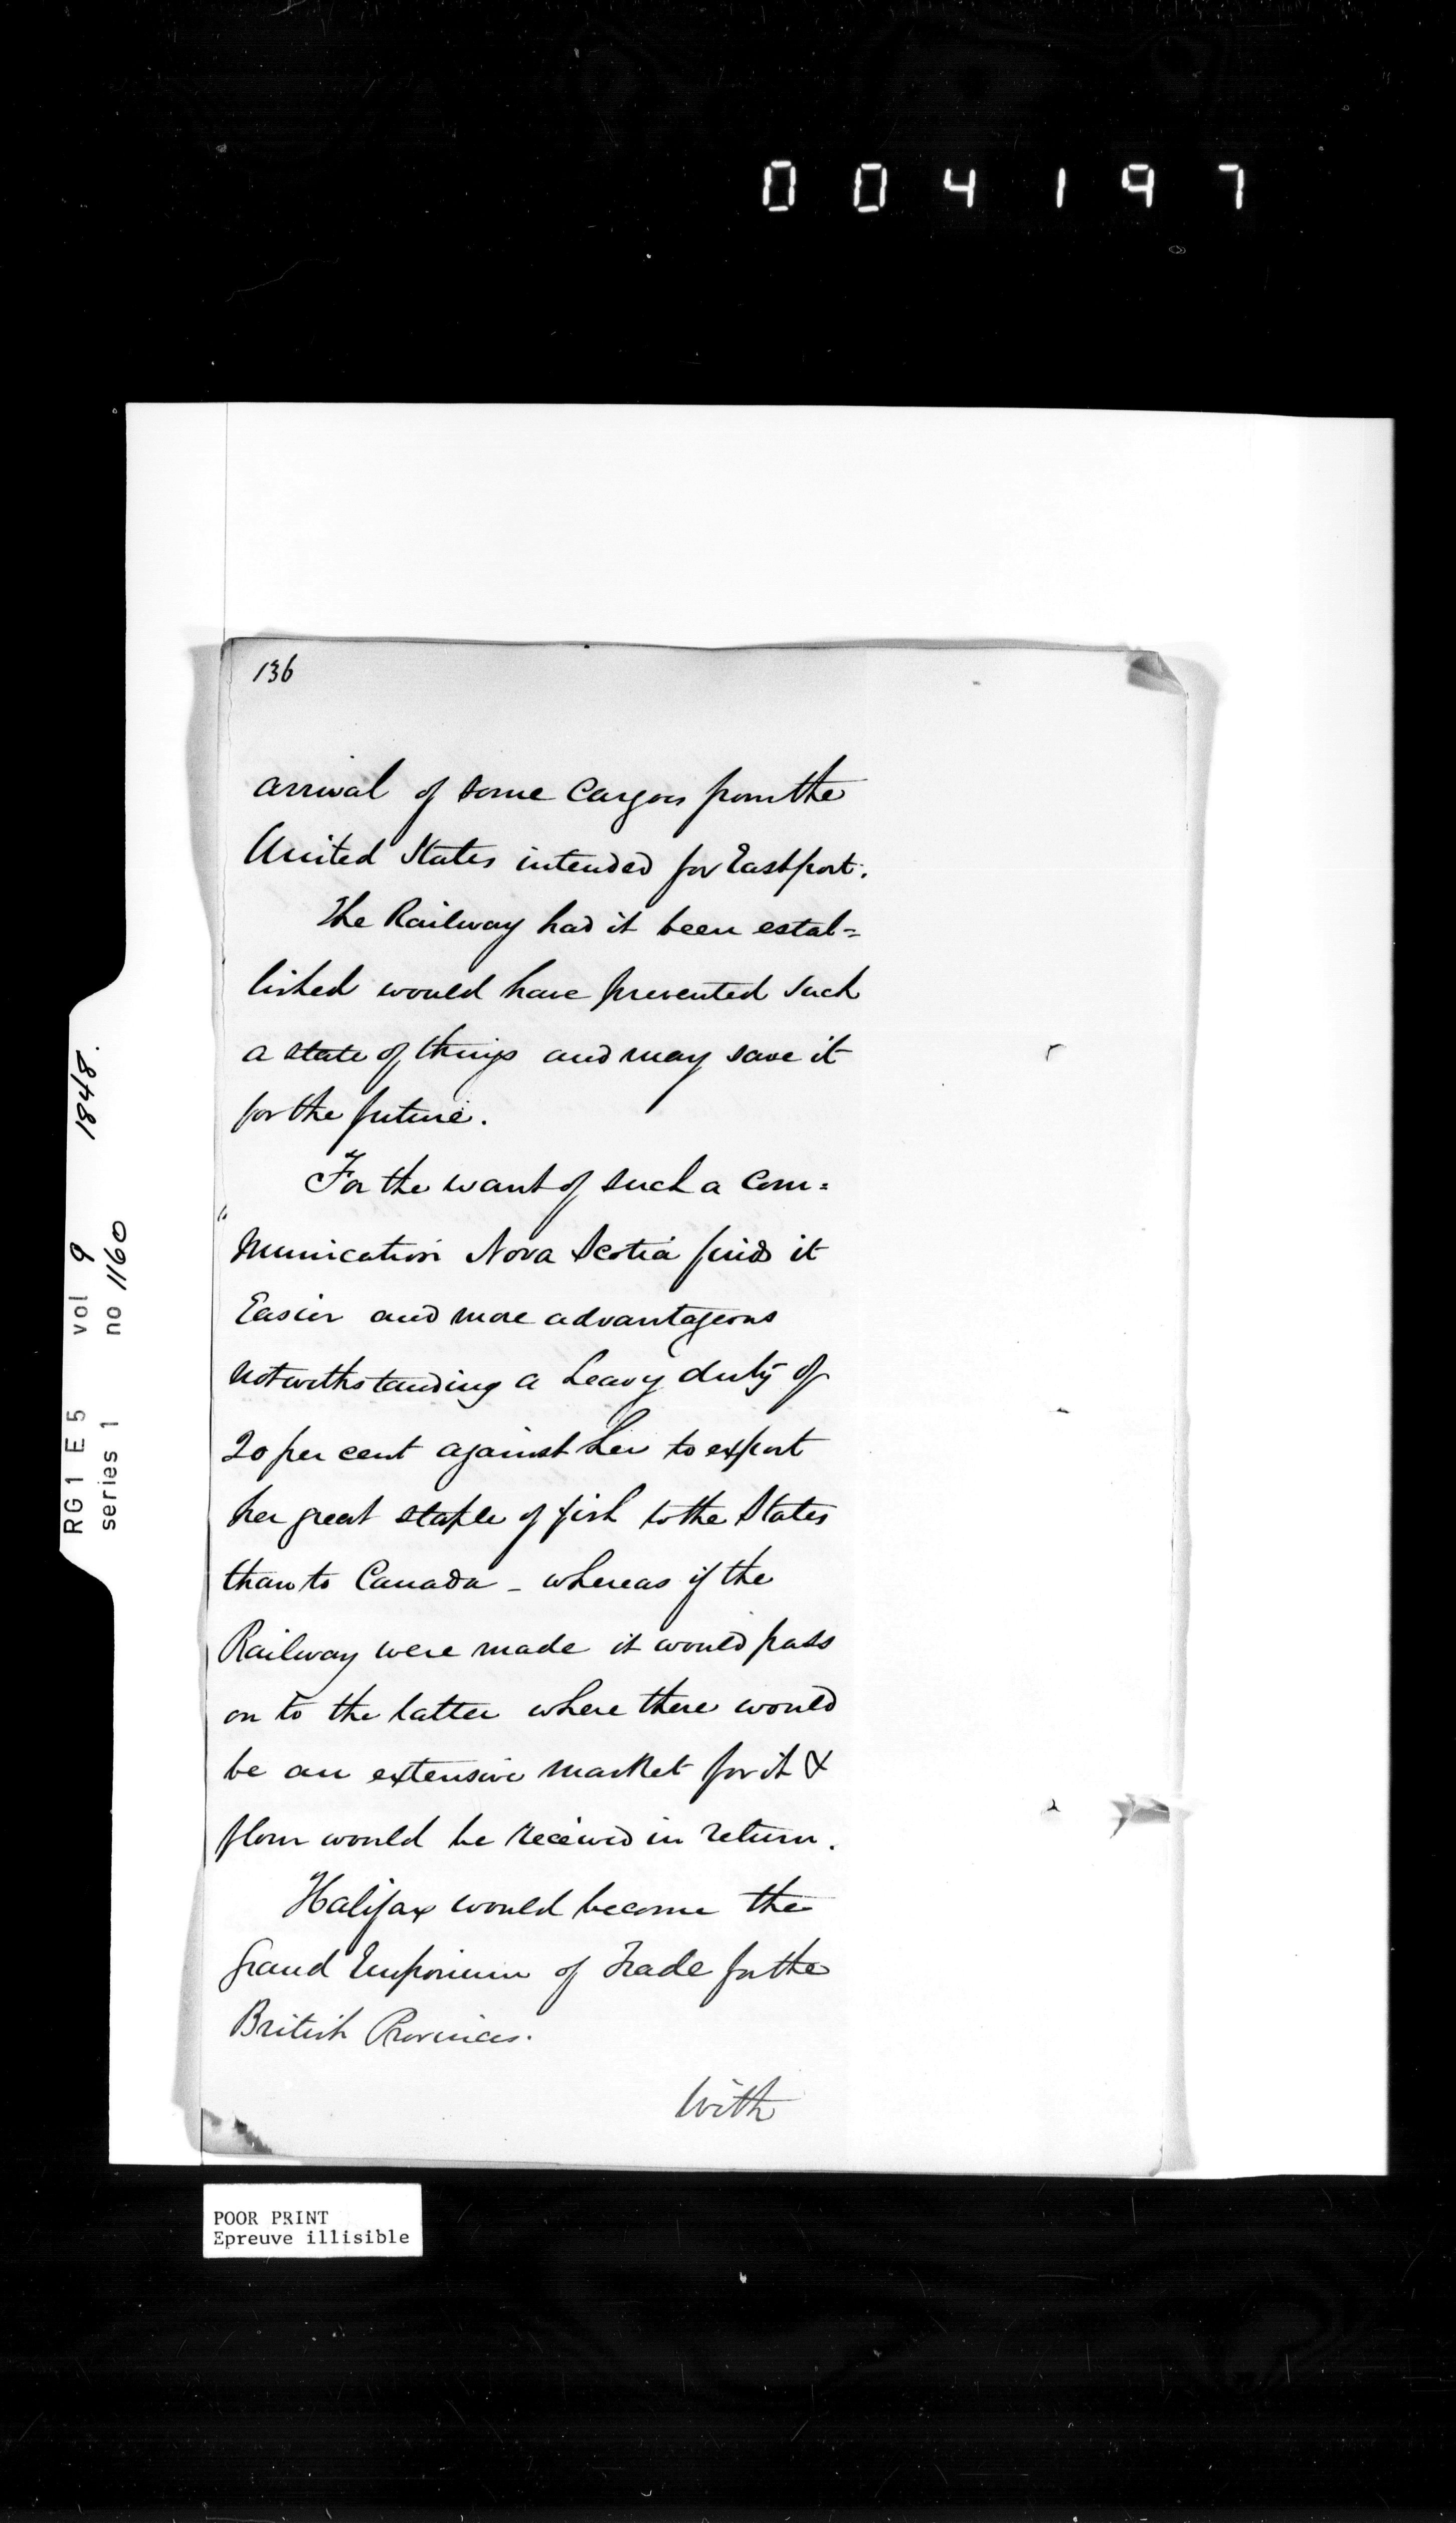 004197
136
arrival of some Cargoes from the
United States intended for Eastport.
The Railway had it been estab=
lished would have prevented such
a state of things and may save it
for the future.
For the want of such a Com=
"munication Nova Scotia finds it
Easier and more advantageous
notwithstanding a heavy duty of
20 per cent against her to export
her great staple of fish to the States
than to Canada - whereas if the
Railway were made it would pass
on to the latter where there would
be an extensive market for it &
flour would be received in return.
Halifax would become the
Grand Emporium of Trade for the
British Provinces.
With
RG1 E5 vol 9 1848.
series 1 no 1160
POOR PRINT
Epreuve illisible